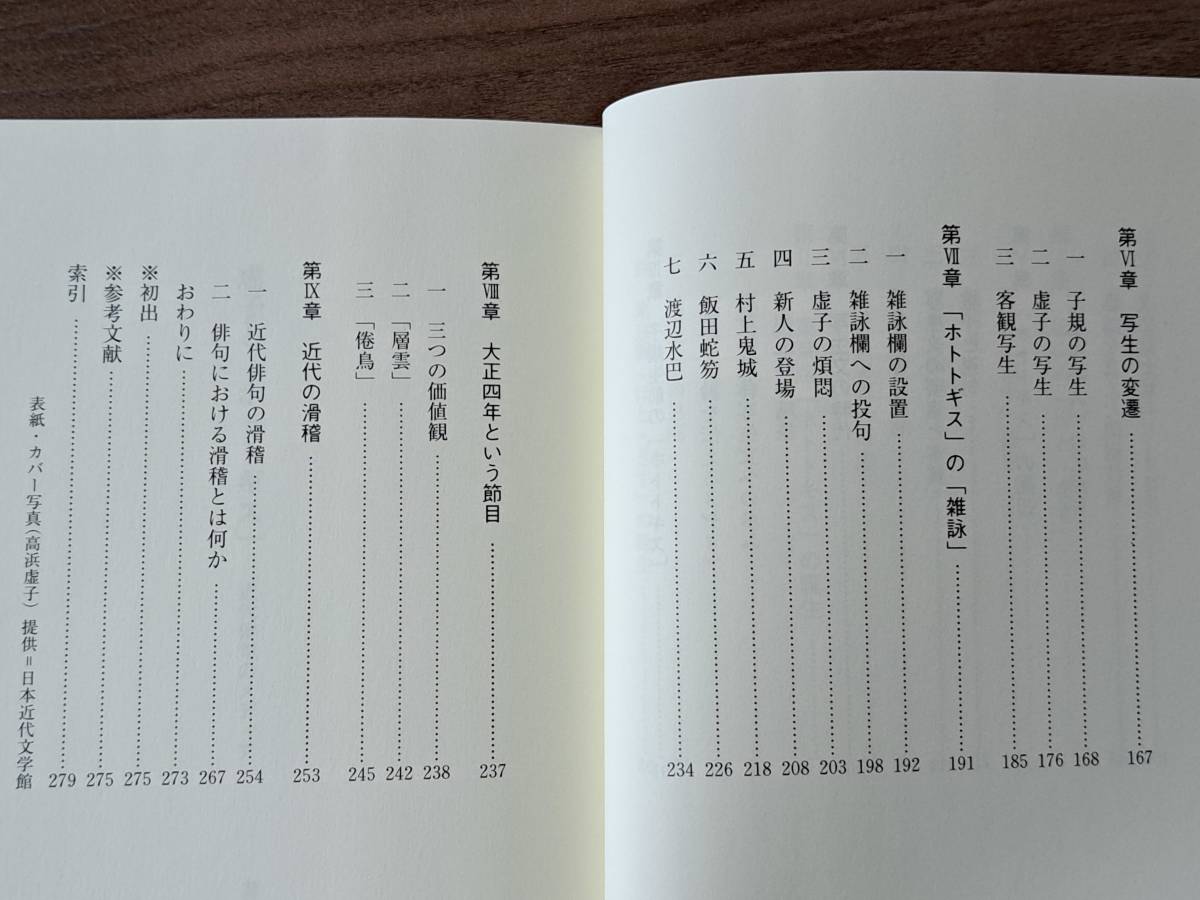 第Ⅵ章　写生の変遷……167
一　子規の写生……168
二　虚子の写生……176
三　客観写生……185
第Ⅶ章　「ホトトギス」の「雑詠」……191
一　雑詠欄の設置……192
二　雑詠欄への投句……198
三　虚子の煩悶……203
四　新人の登場……208
五　村上鬼城……218
六　飯田蛇笏……226
七　渡辺水巴……234
第Ⅷ章　大正四年という節目……237
一　三つの価値観……238
二　「層雲」……242
三　「倦鳥」……245
第Ⅸ章　近代の滑稽……253
一　近代俳句の滑稽……254
二　俳句における滑稽とは何か……267
おわりに……273
※初出……275
※参考文献……275
索引……279
表紙・カバー写真（高浜虚子）　提供＝日本近代文学館